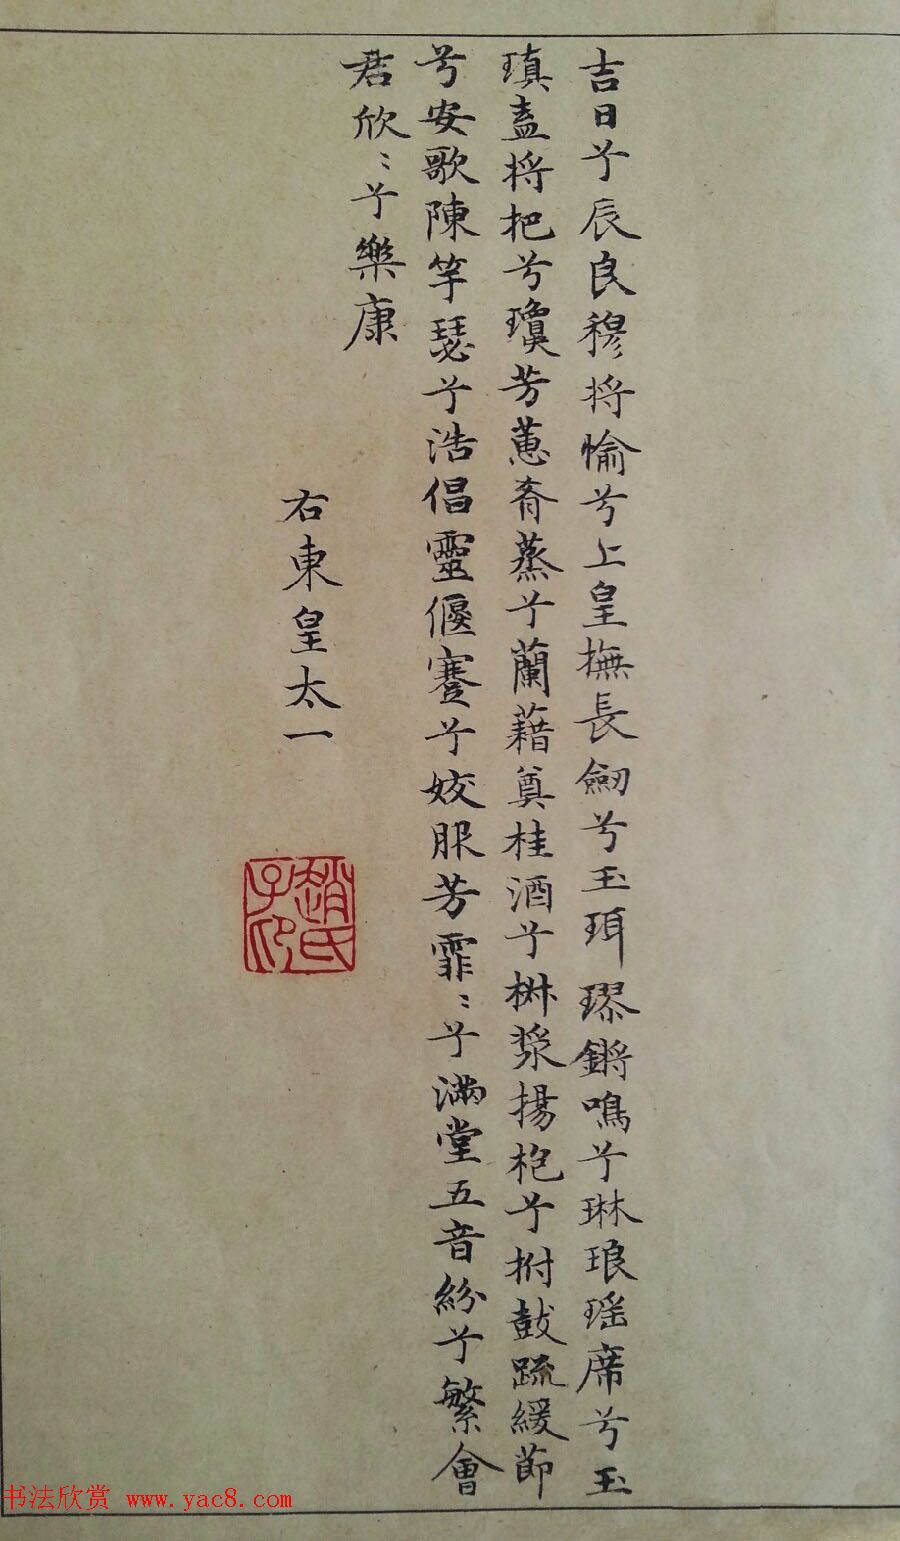 吉日兮辰良穆將愉兮上皇撫長劒兮玉珥璆鏘鳴兮琳琅瑶席兮玉
瑱盍將把兮瓊芳蕙肴蒸兮蘭藉奠桂酒兮椒漿揚枹兮拊鼓疏緩節
兮安歌陳竽瑟兮浩倡靈偃蹇兮姣服芳霏〻兮滿堂五音紛兮繁會
君欣〻兮樂康
右東皇太一
趙氏子印
书法欣赏 www.yac8.com